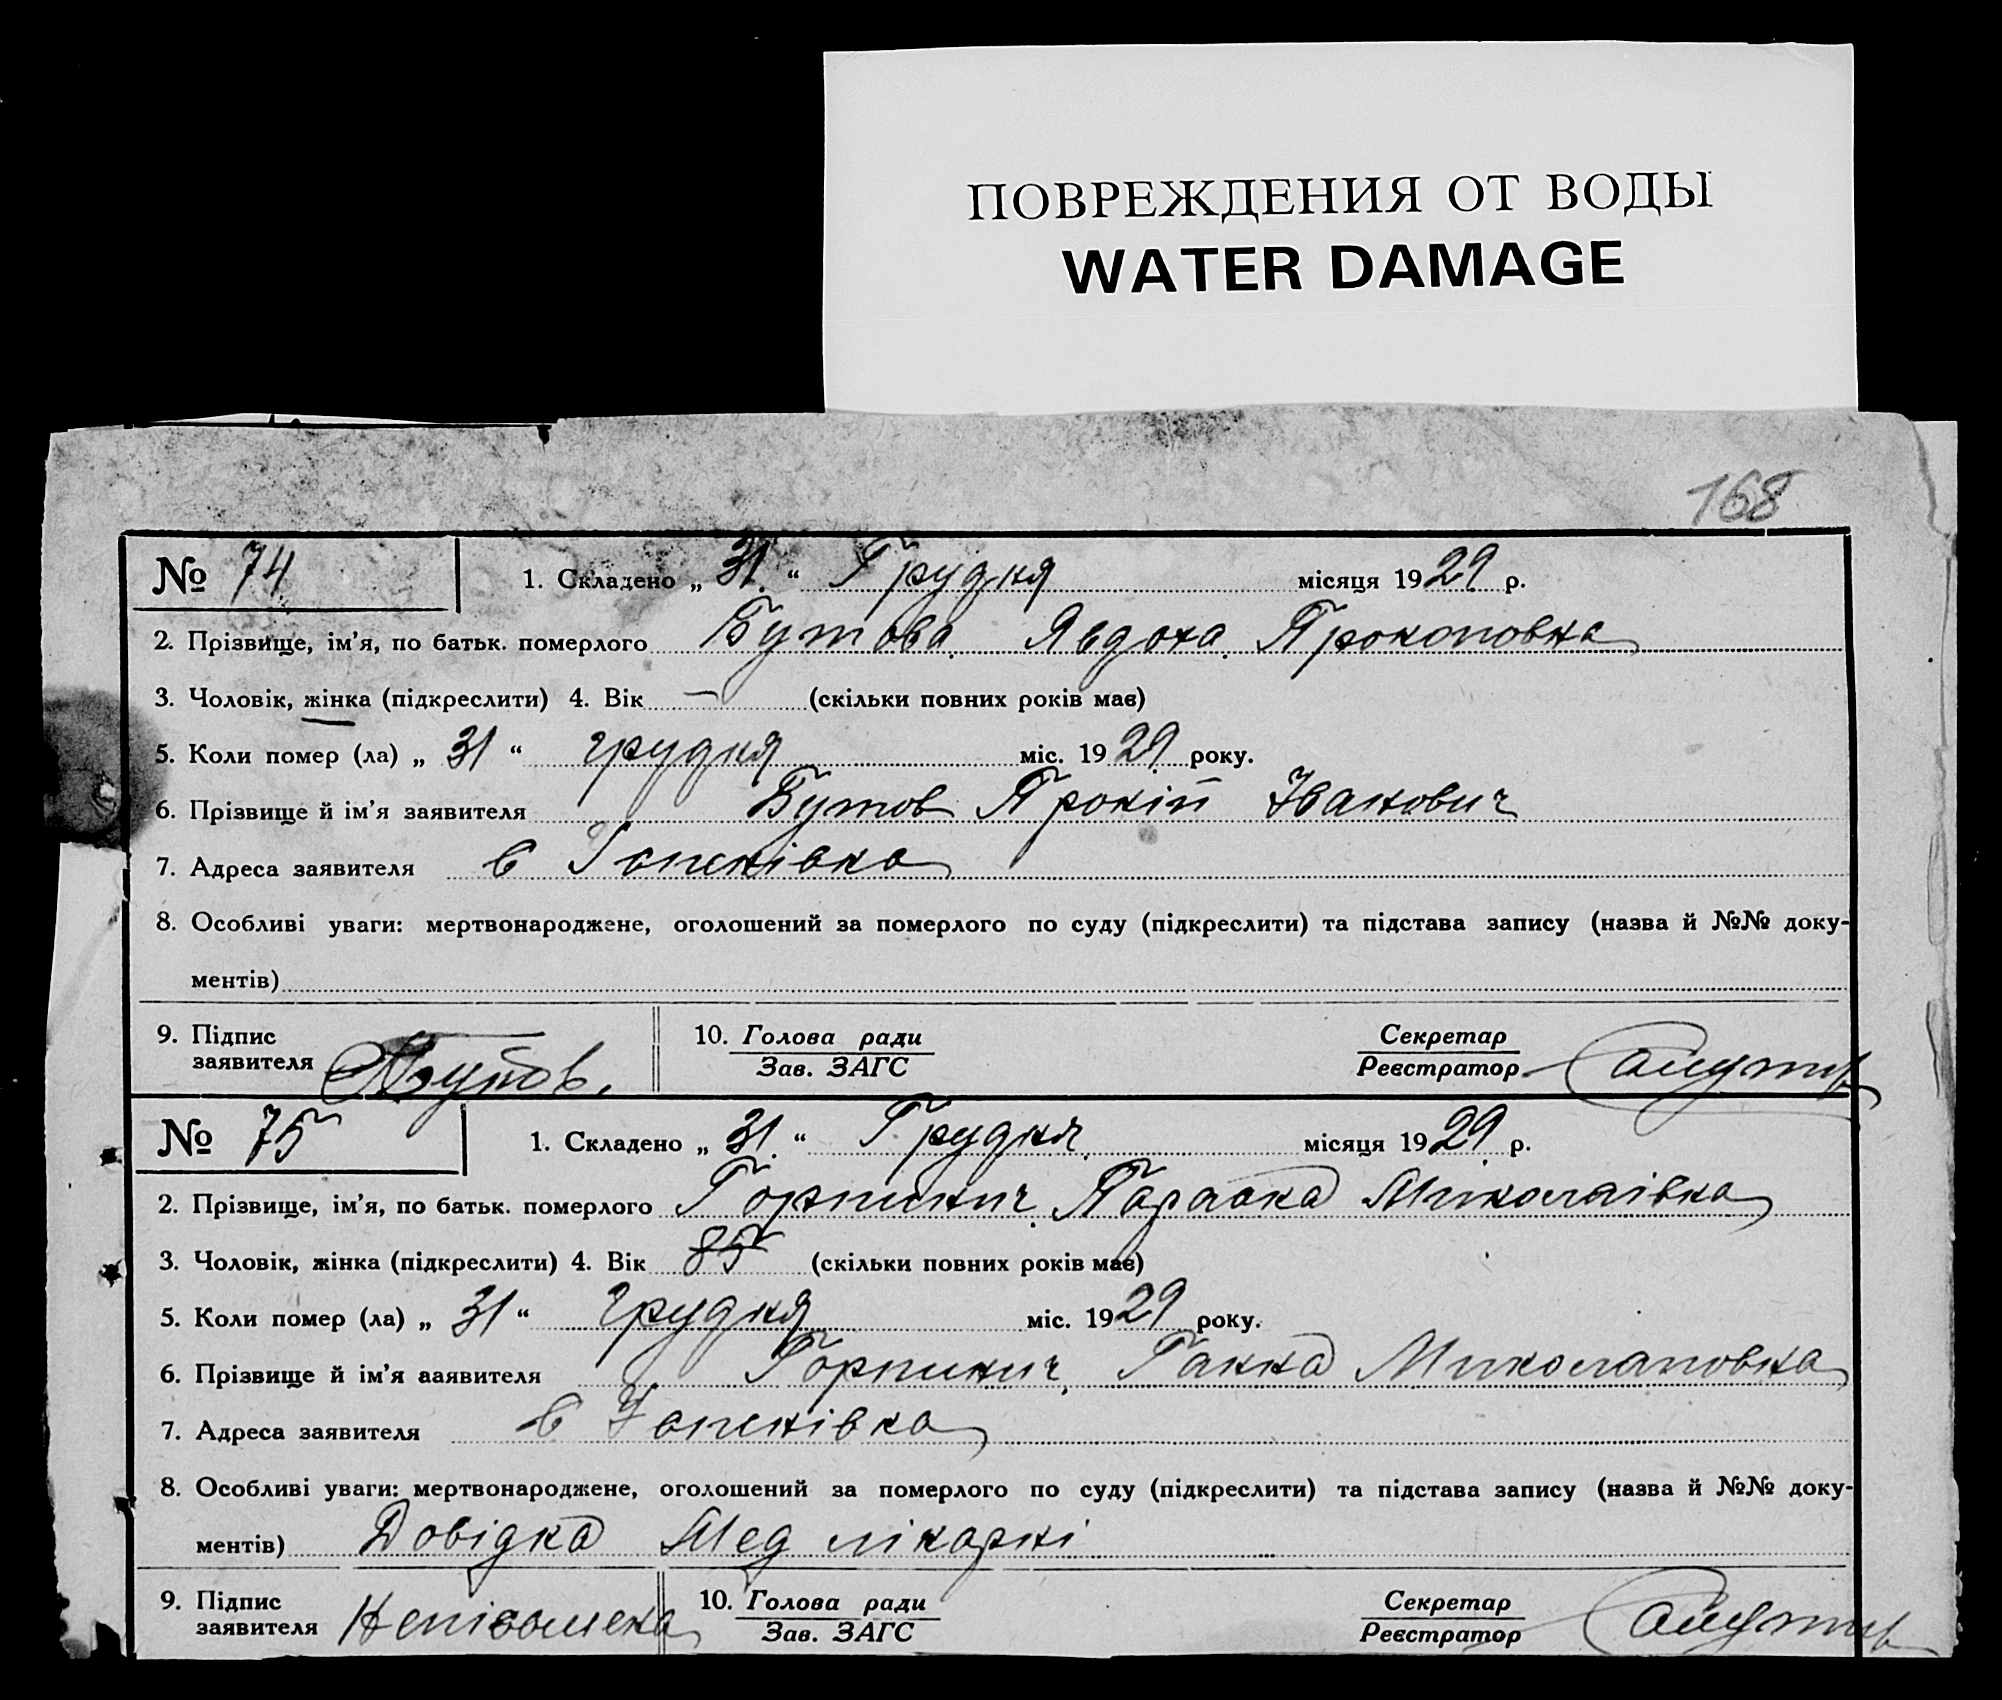 ПОВРЕЖДЕНИЯ ОТ ВОДЫ
WATER DAMAGE
168
№ 74 1. Складено „ 31 “ Грудня місяця 1929 р.
2. Прізвище, ім’я, по батьк. померлого Бутова Явдоха Прокоповна
3. Чоловік, жінка (підкреслити) 4. Вік — (скільки повних років має)
5. Коли помер (ла) „ 31 “ грудня міс. 1929 року.
6. Прізвище й ім’я заявителя Бутов Прокіп Іванович
7. Адреса заявителя
8. Особливі уваги: мертвонароджене, оголошений за померлого по суду (підкреслити) та підстава запису (назва й №№ доку-
ментів)
9. Підпис заявителя Бутов. 10. Голова ради Зав. ЗАГС Секретар Реєстратор
№ 75 1. Складено „ 31 “ Грудня місяця 1929 р.
2. Прізвище, ім’я, по батьк. померлого Горпинич Параска Миколаівна
3. Чоловік, жінка (підкреслити) 4. Вік 85 (скільки повних років має)
5. Коли помер (ла) „ 31 “ грудня міс. 1929 року.
6. Прізвище й ім’я заявителя Горпинич Ганна Миколаповна
7. Адреса заявителя
8. Особливі уваги: мертвонароджене, оголошений за померлого по суду (підкреслити) та підстава запису (назва й №№ доку-
ментів) Довідка Мед лікаркі
9. Підпис заявителя Неписьмена 10. Голова ради Зав. ЗАГС Секретар Реєстратор